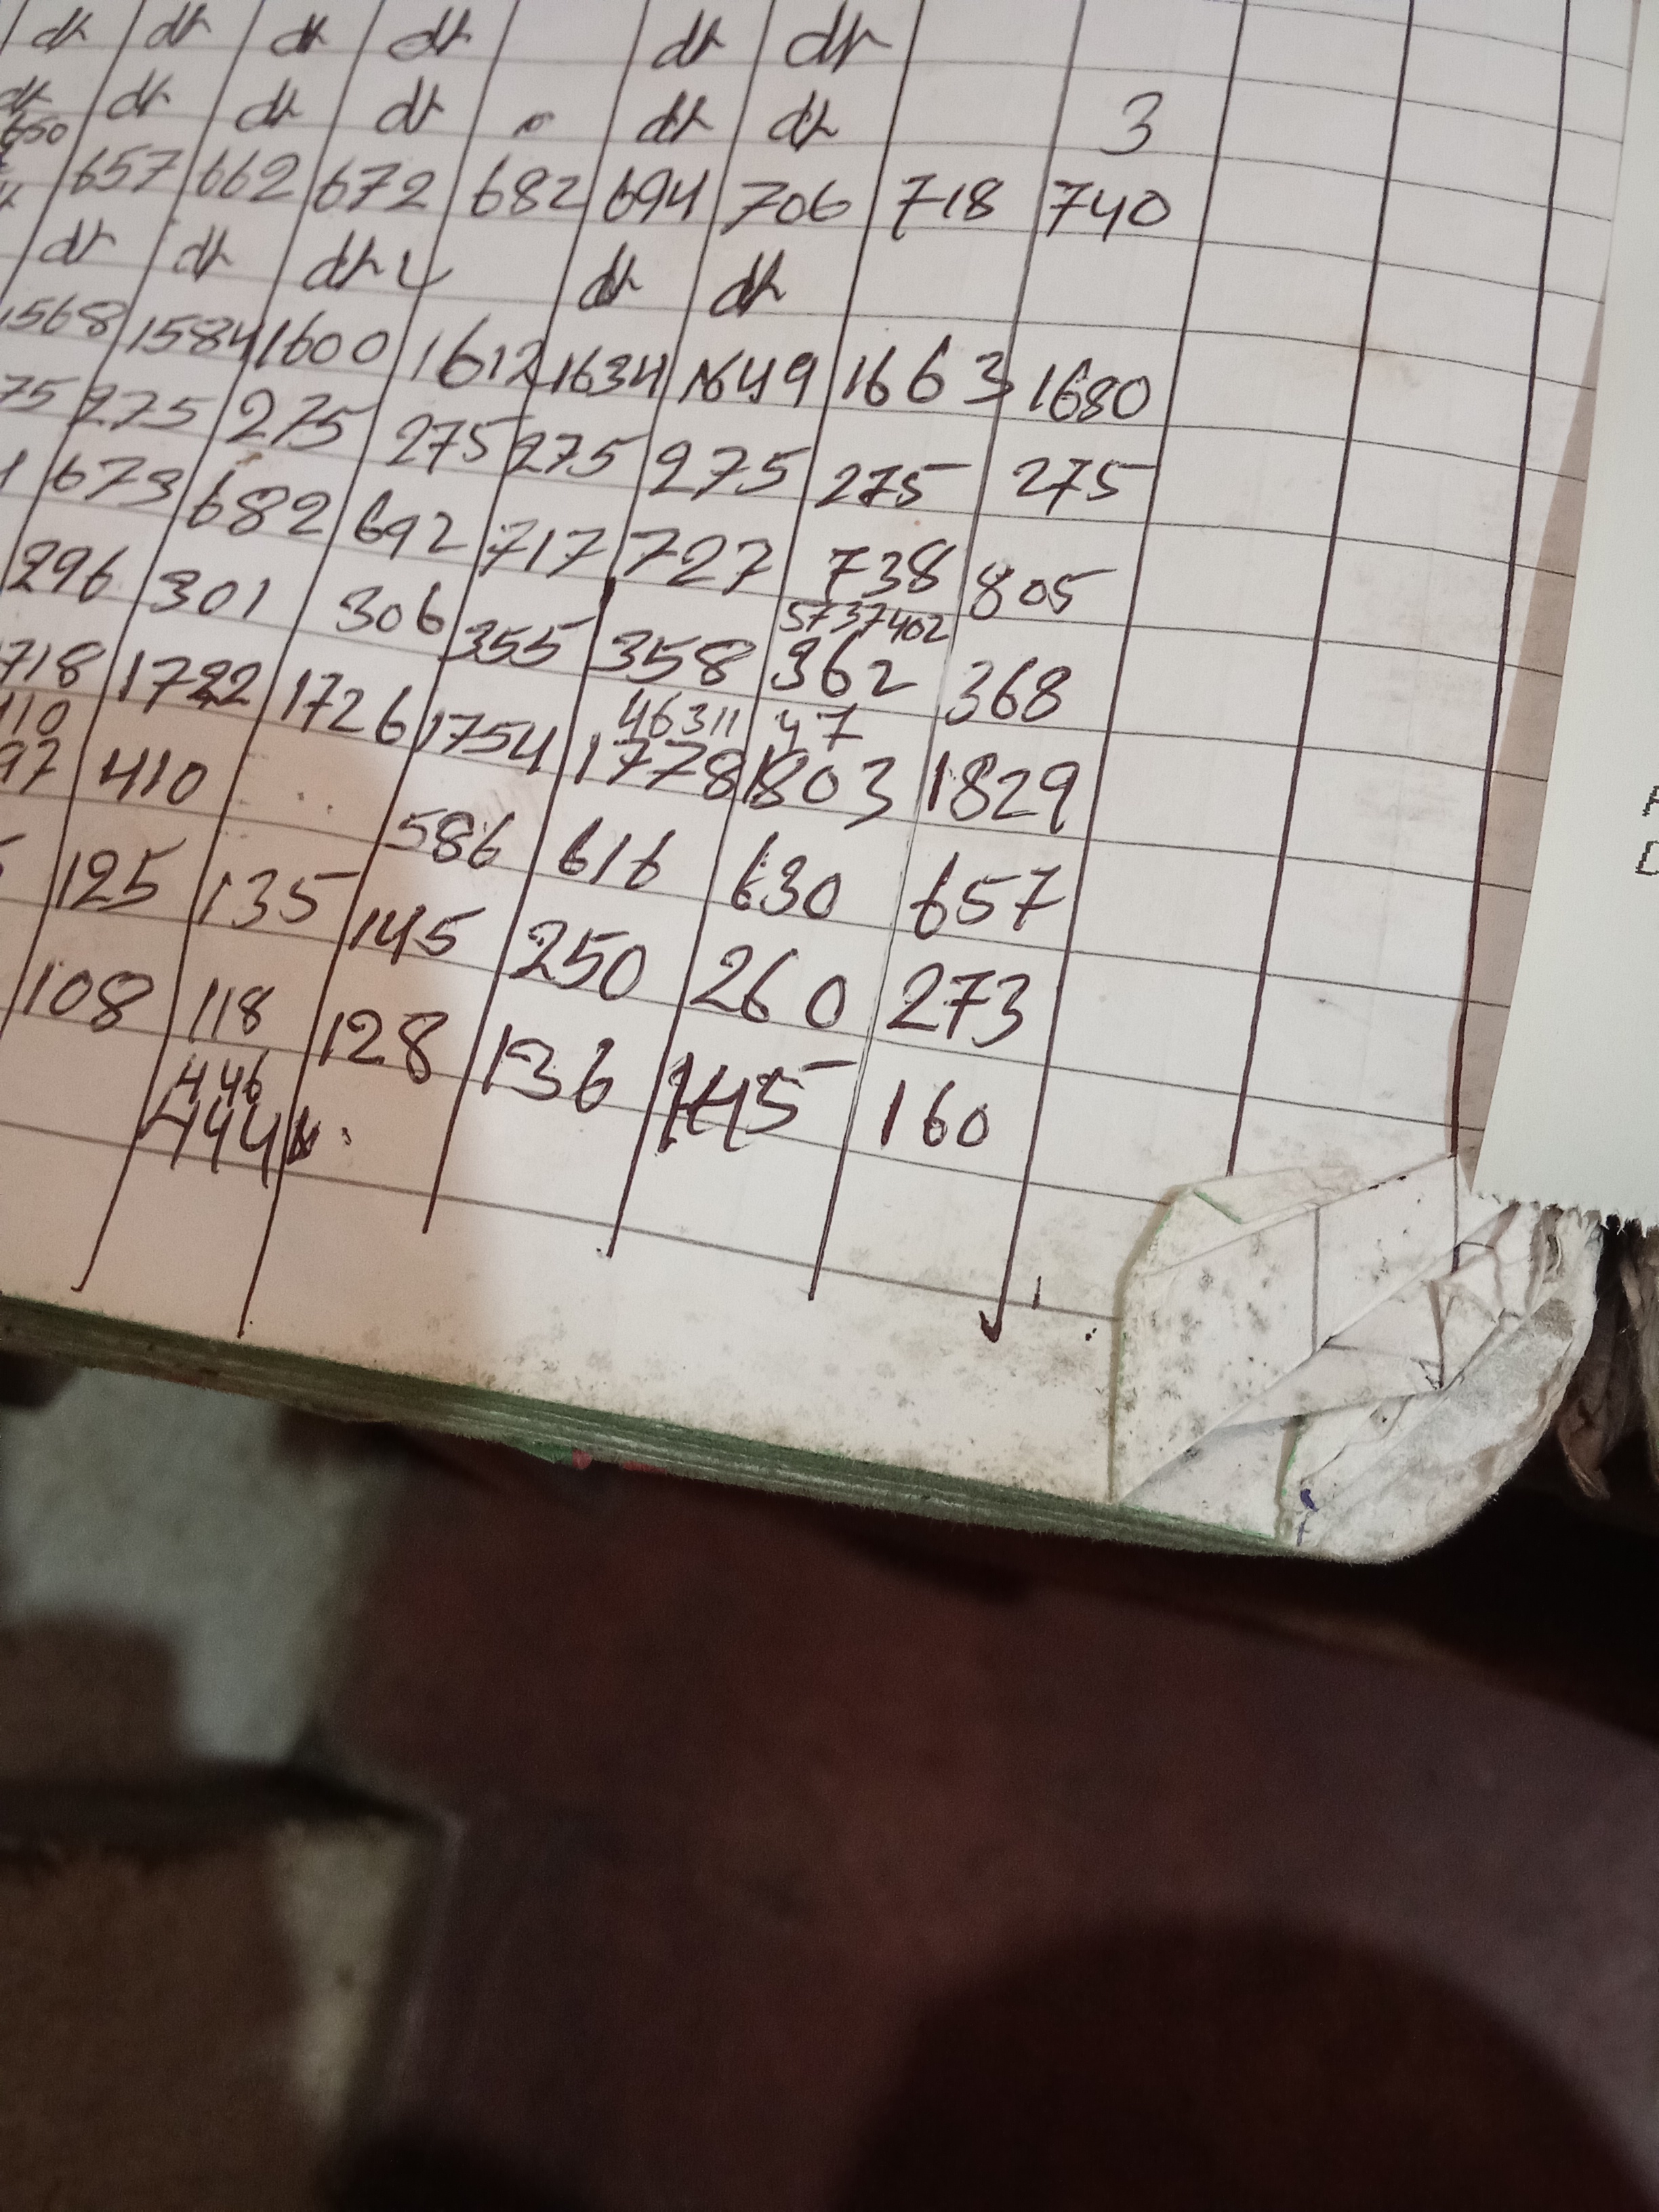 dr dr dr dr dr dr
dr dr dr dr dr dr 3
650
657 662 672 682 694 706 718 740
dr dr dr dr dr
1568 1584 1600 1612 1634 1649 1663 1680
75 275 275 275 275 275 275 275
1 673 682 692 717 727 738 805
5737402
296 301 306 355 358 362 368
46311 47
718 1722 1726 1754 1778 1803 1829
110
97 410 586 616 630 657
125 135 145 250 260 273
108 118 128 136 145 160
446
444